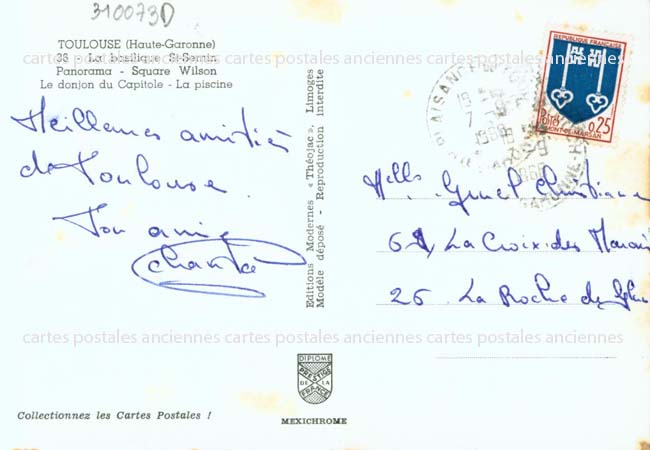 310073D
TOULOUSE (Haute-Garonne)
38 - La basilique St-Sernin
Panorama - Square Wilson
Le donjon du Capitole - La piscine
cartes postales anciennes cartes postales anciennes cartes postales anciennes cartes postales anciennes
Meilleures amitiés
de Toulouse.
Ton amie
Chantal
Editions Modernes « Théojac », Limoges
Modèle déposé - Reproduction interdite
REPUBLIQUE FRANÇAISE
Postes 0,25
MONT-DE-MARSAN
PLAISANCE
1966
GARONNE
Melle Christiane
61, La Croix des Marais
26 La Roche de Glun
cartes postales anciennes cartes postales anciennes cartes postales anciennes cartes postales anciennes
DIPLOME
PRESTIGE
DE LA
FRANCE
MEXICHROME
Collectionnez les Cartes Postales !